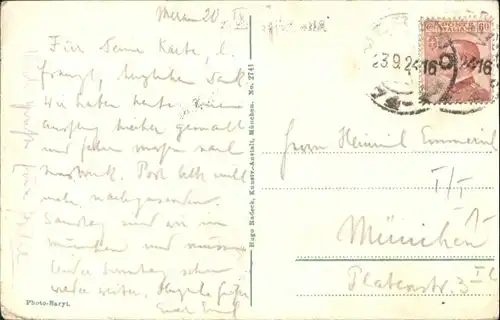 Meran 20. IX
Für Deine Karte, l.
Franzl, herzlichen Dank
Wir haben heute
Ausflug hieher gemacht
und fahren morgen nach
Innsbruck. Post bitte nicht
mehr nachzusenden.
Samstag sind wir in
München und müssen
leider Sonntag schon
wieder weiter. Herzliche Grüße
Euer Emil
Photo-Baryt.
Hugo Radeck, Kunstv.-Anstalt, München. No. 2741
23.9.24 16
24 16
POSTE ITALIANE
60
Herrn Heinrich Emmerich
I/I
München
Platenstr. 3